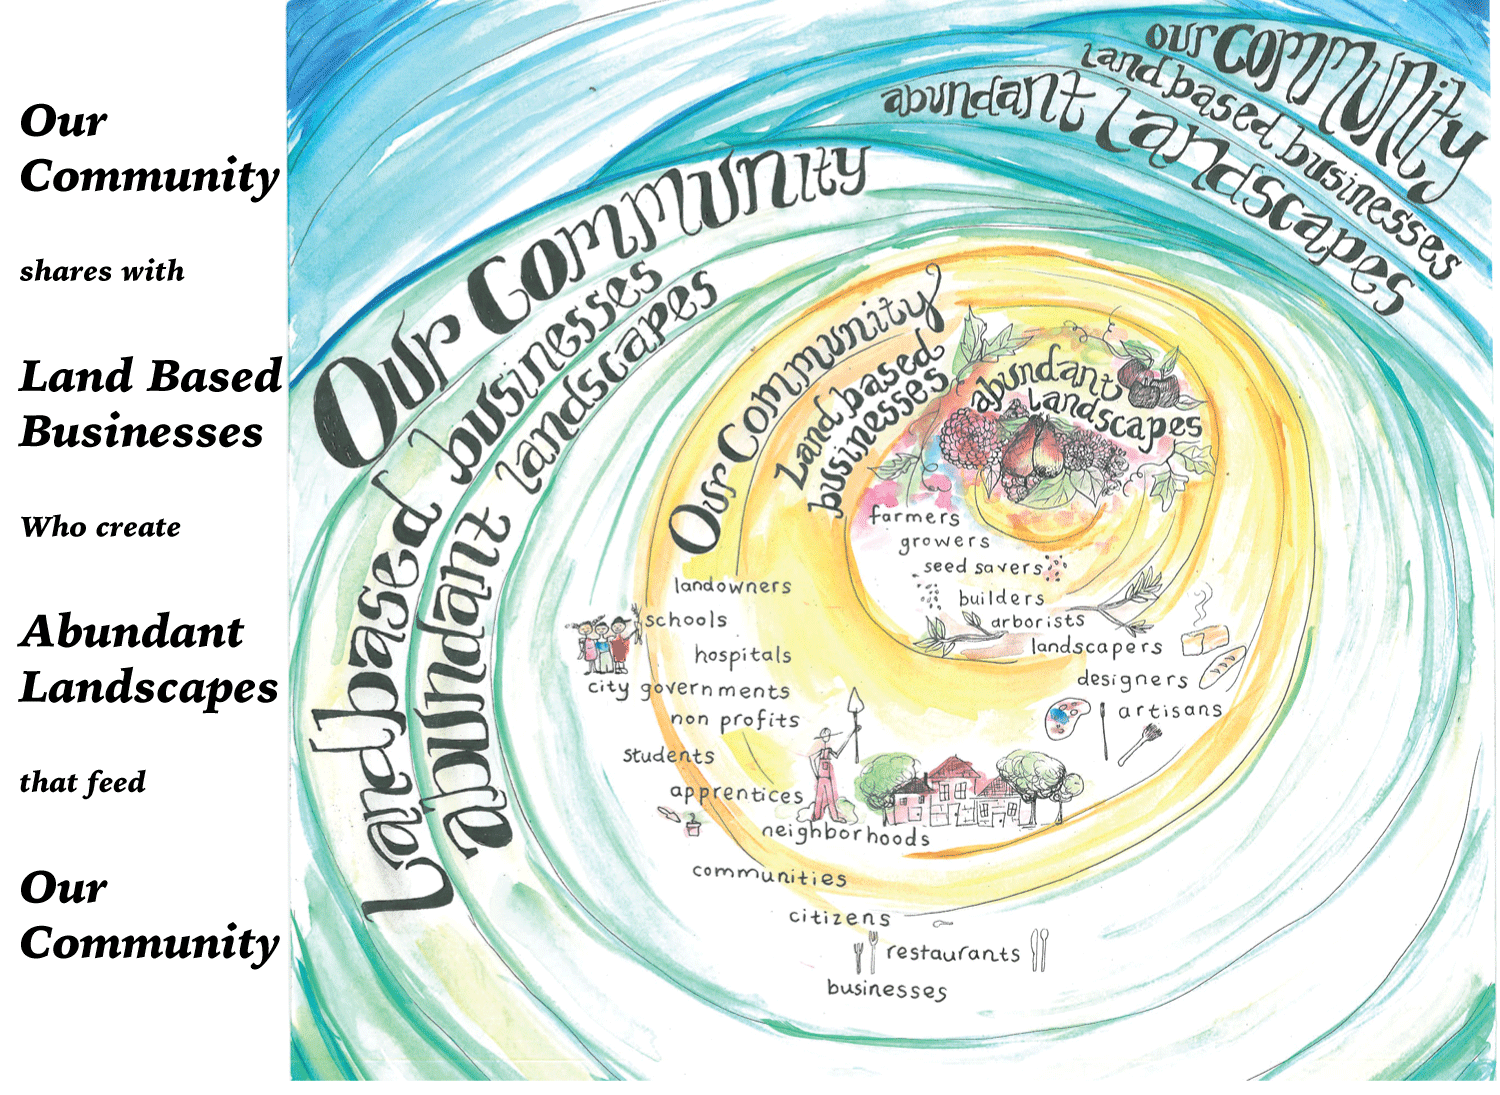 Our
Community
shares with
Land Based
Businesses
Who create
Abundant
Landscapes
that feed
Our
Community
our community
land based businesses
abundant landscapes
Our Community
Land based businesses
abundant landscapes
Our Community
Land based
businesses
abundant
Landscapes
farmers
growers
seed savers
builders
arborists
landscapers
designers
artisans
landowners
schools
hospitals
city governments
non profits
students
apprentices
neighborhoods
communities
citizens
restaurants
businesses